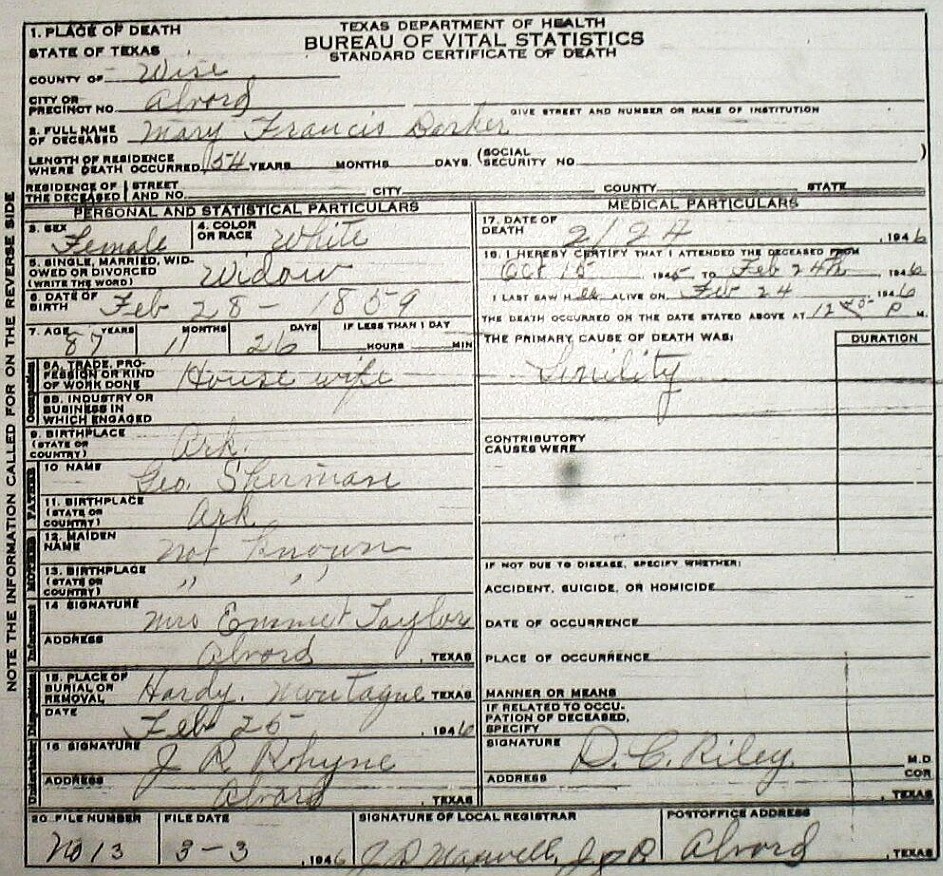 TEXAS DEPARTMENT OF HEALTH
BUREAU OF VITAL STATISTICS
STANDARD CERTIFICATE OF DEATH
1. PLACE OF DEATH
STATE OF TEXAS
COUNTY OF Wise
CITY OR PRECINCT NO. Alvord
GIVE STREET AND NUMBER OR NAME OF INSTITUTION
2. FULL NAME OF DECEASED Mary Francis
LENGTH OF RESIDENCE WHERE DEATH OCCURRED 54 YEARS MONTHS DAYS. (SOCIAL SECURITY NO. )
RESIDENCE OF THE DECEASED (STREET AND NO. CITY COUNTY STATE
PERSONAL AND STATISTICAL PARTICULARS
3. SEX Female 4. COLOR OR RACE White
5. SINGLE, MARRIED, WIDOWED OR DIVORCED (WRITE THE WORD) Widow
6. DATE OF BIRTH Feb 28 - 1859
7. AGE YEARS MONTHS DAYS IF LESS THAN 1 DAY
87 11 26 HOURS MIN
Occupation
8A. TRADE, PROFESSION OR KIND OF WORK DONE House wife
8B. INDUSTRY OR BUSINESS IN WHICH ENGAGED
9. BIRTHPLACE (STATE OR COUNTRY) Ark.
FATHER
10 NAME Geo. Sherman
11. BIRTHPLACE (STATE OR COUNTRY) Ark.
MOTHER
12. MAIDEN NAME not known
13. BIRTHPLACE (STATE OR COUNTRY) " "
Informant
14 SIGNATURE Mrs Emmet Taylor
ADDRESS Alvord , TEXAS
Disposition
15. PLACE OF BURIAL OR REMOVAL Hardy. Montague TEXAS
DATE Feb 25 , 1946
Undertaker
16 SIGNATURE J R Rhyne
ADDRESS Alvord , TEXAS
MEDICAL PARTICULARS
17. DATE OF DEATH 2/24 , 1946
18. I HEREBY CERTIFY THAT I ATTENDED THE DECEASED FROM
Oct 15 1945 TO Feb 24th 1946
I LAST SAW H ALIVE ON Feb 24 1946
THE DEATH OCCURRED ON THE DATE STATED ABOVE AT 12 P M.
THE PRIMARY CAUSE OF DEATH WAS: DURATION
Senility
CONTRIBUTORY CAUSES WERE
IF NOT DUE TO DISEASE, SPECIFY WHETHER:
ACCIDENT, SUICIDE, OR HOMICIDE
DATE OF OCCURRENCE
PLACE OF OCCURRENCE
MANNER OR MEANS
IF RELATED TO OCCUPATION OF DECEASED, SPECIFY
SIGNATURE D. C. Riley M.D. COR.
ADDRESS , TEXAS
20. FILE NUMBER FILE DATE SIGNATURE OF LOCAL REGISTRAR POSTOFFICE ADDRESS
No 13 3-3 , 1946 J D Maxwell, Alvord , TEXAS
NOTE THE INFORMATION CALLED FOR ON THE REVERSE SIDE